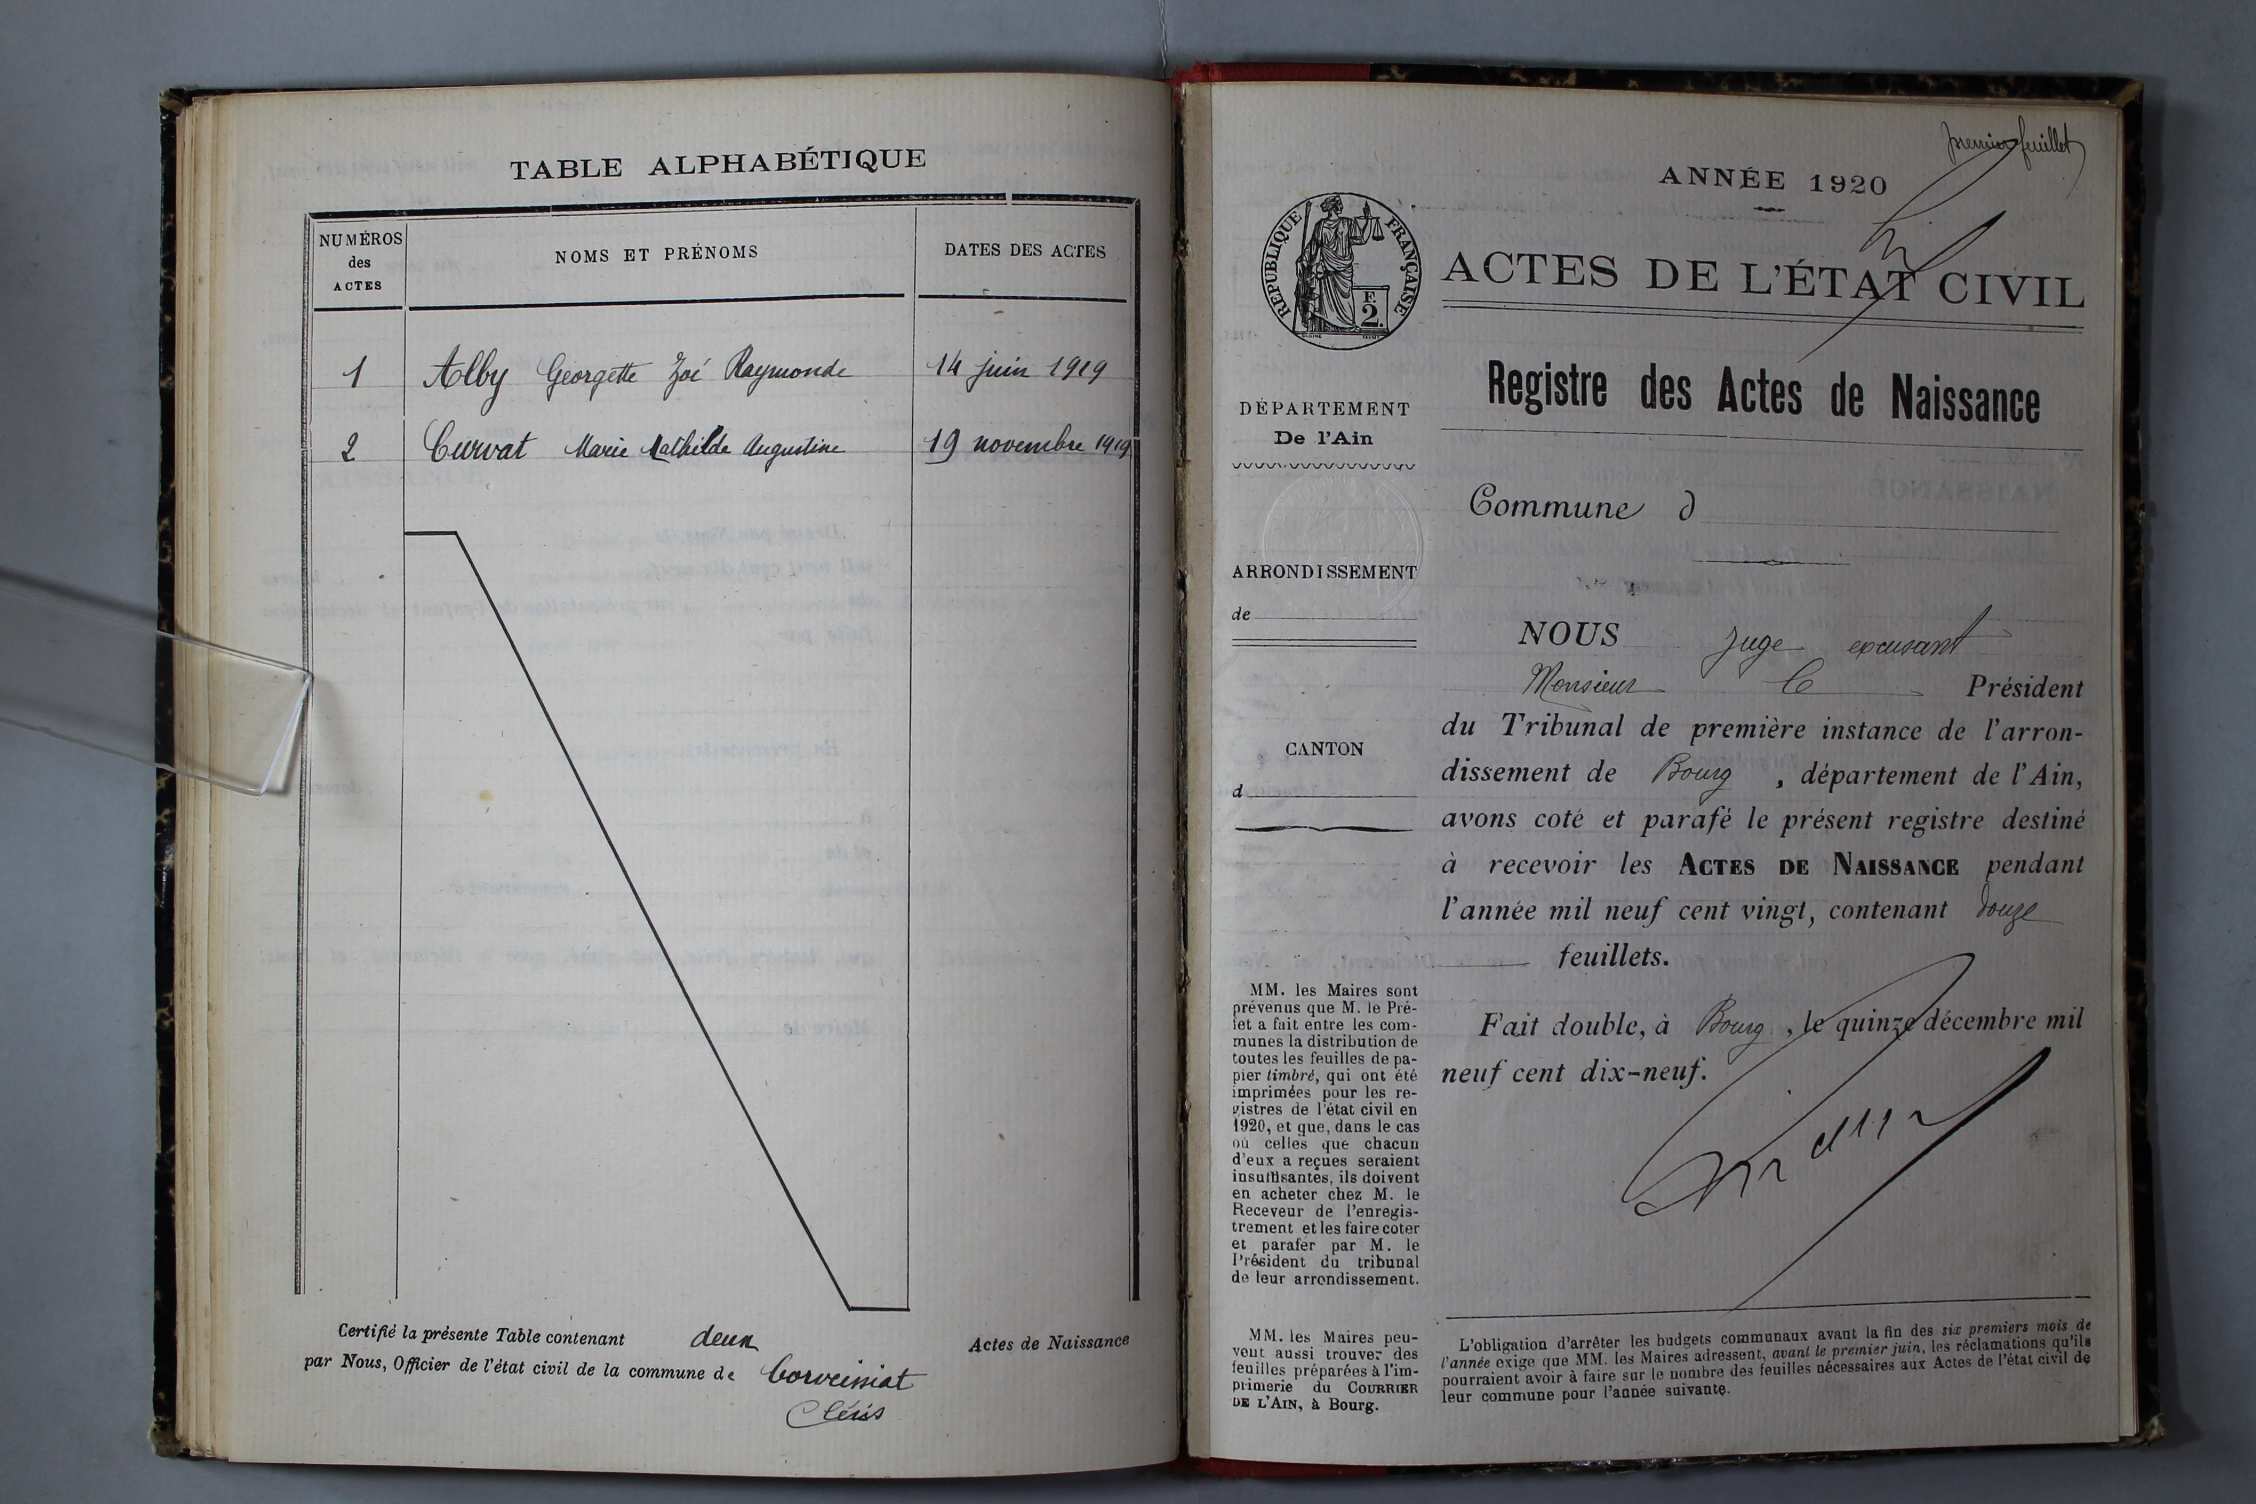 TABLE ALPHABÉTIQUE
NUMÉROS
des
ACTES
NOMS ET PRÉNOMS
DATES DES ACTES
1 Alby Georgette Zoé Raymonde 14 juin 1919
2 Curvat Marie Mathilde Augustine 19 novembre 1919
Certifié la présente Table contenant deux Actes de Naissance
par Nous, Officier de l'état civil de la commune de Corveissiat
premier feuillet
ANNÉE 1920
RÉPUBLIQUE FRANÇAISE
F.
2.
ACTES DE L'ÉTAT CIVIL
Registre des Actes de Naissance
DÉPARTEMENT
De l'Ain
Commune d
ARRONDISSEMENT
de
CANTON
d
MM. les Maires sont
prévenus que M. le Pré-
fet a fait entre les com-
munes la distribution de
toutes les feuilles de pa-
pier timbré, qui ont été
imprimées pour les re-
gistres de l'état civil en
1920, et que, dans le cas
où celles que chacun
d'eux a reçues seraient
insuffisantes, ils doivent
en acheter chez M. le
Receveur de l'enregis-
trement et les faire coter
et parafer par M. le
Président du tribunal
de leur arrondissement.
MM. les Maires peu-
vent aussi trouver des
feuilles préparées à l'im-
primerie du COURRIER
DE L'AIN, à Bourg.
NOUS Juge excusant
Monsieur le Président
du Tribunal de première instance de l'arron-
dissement de Bourg, département de l'Ain,
avons coté et parafé le présent registre destiné
à recevoir les ACTES DE NAISSANCE pendant
l'année mil neuf cent vingt, contenant douze
feuillets.
Fait double, à Bourg, le quinze décembre mil
neuf cent dix-neuf.
L'obligation d'arrêter les budgets communaux avant la fin des six premiers mois de
l'année exige que MM. les Maires adressent, avant le premier juin, les réclamations qu'ils
pourraient avoir à faire sur le nombre des feuilles nécessaires aux Actes de l'état civil de
leur commune pour l'année suivante.